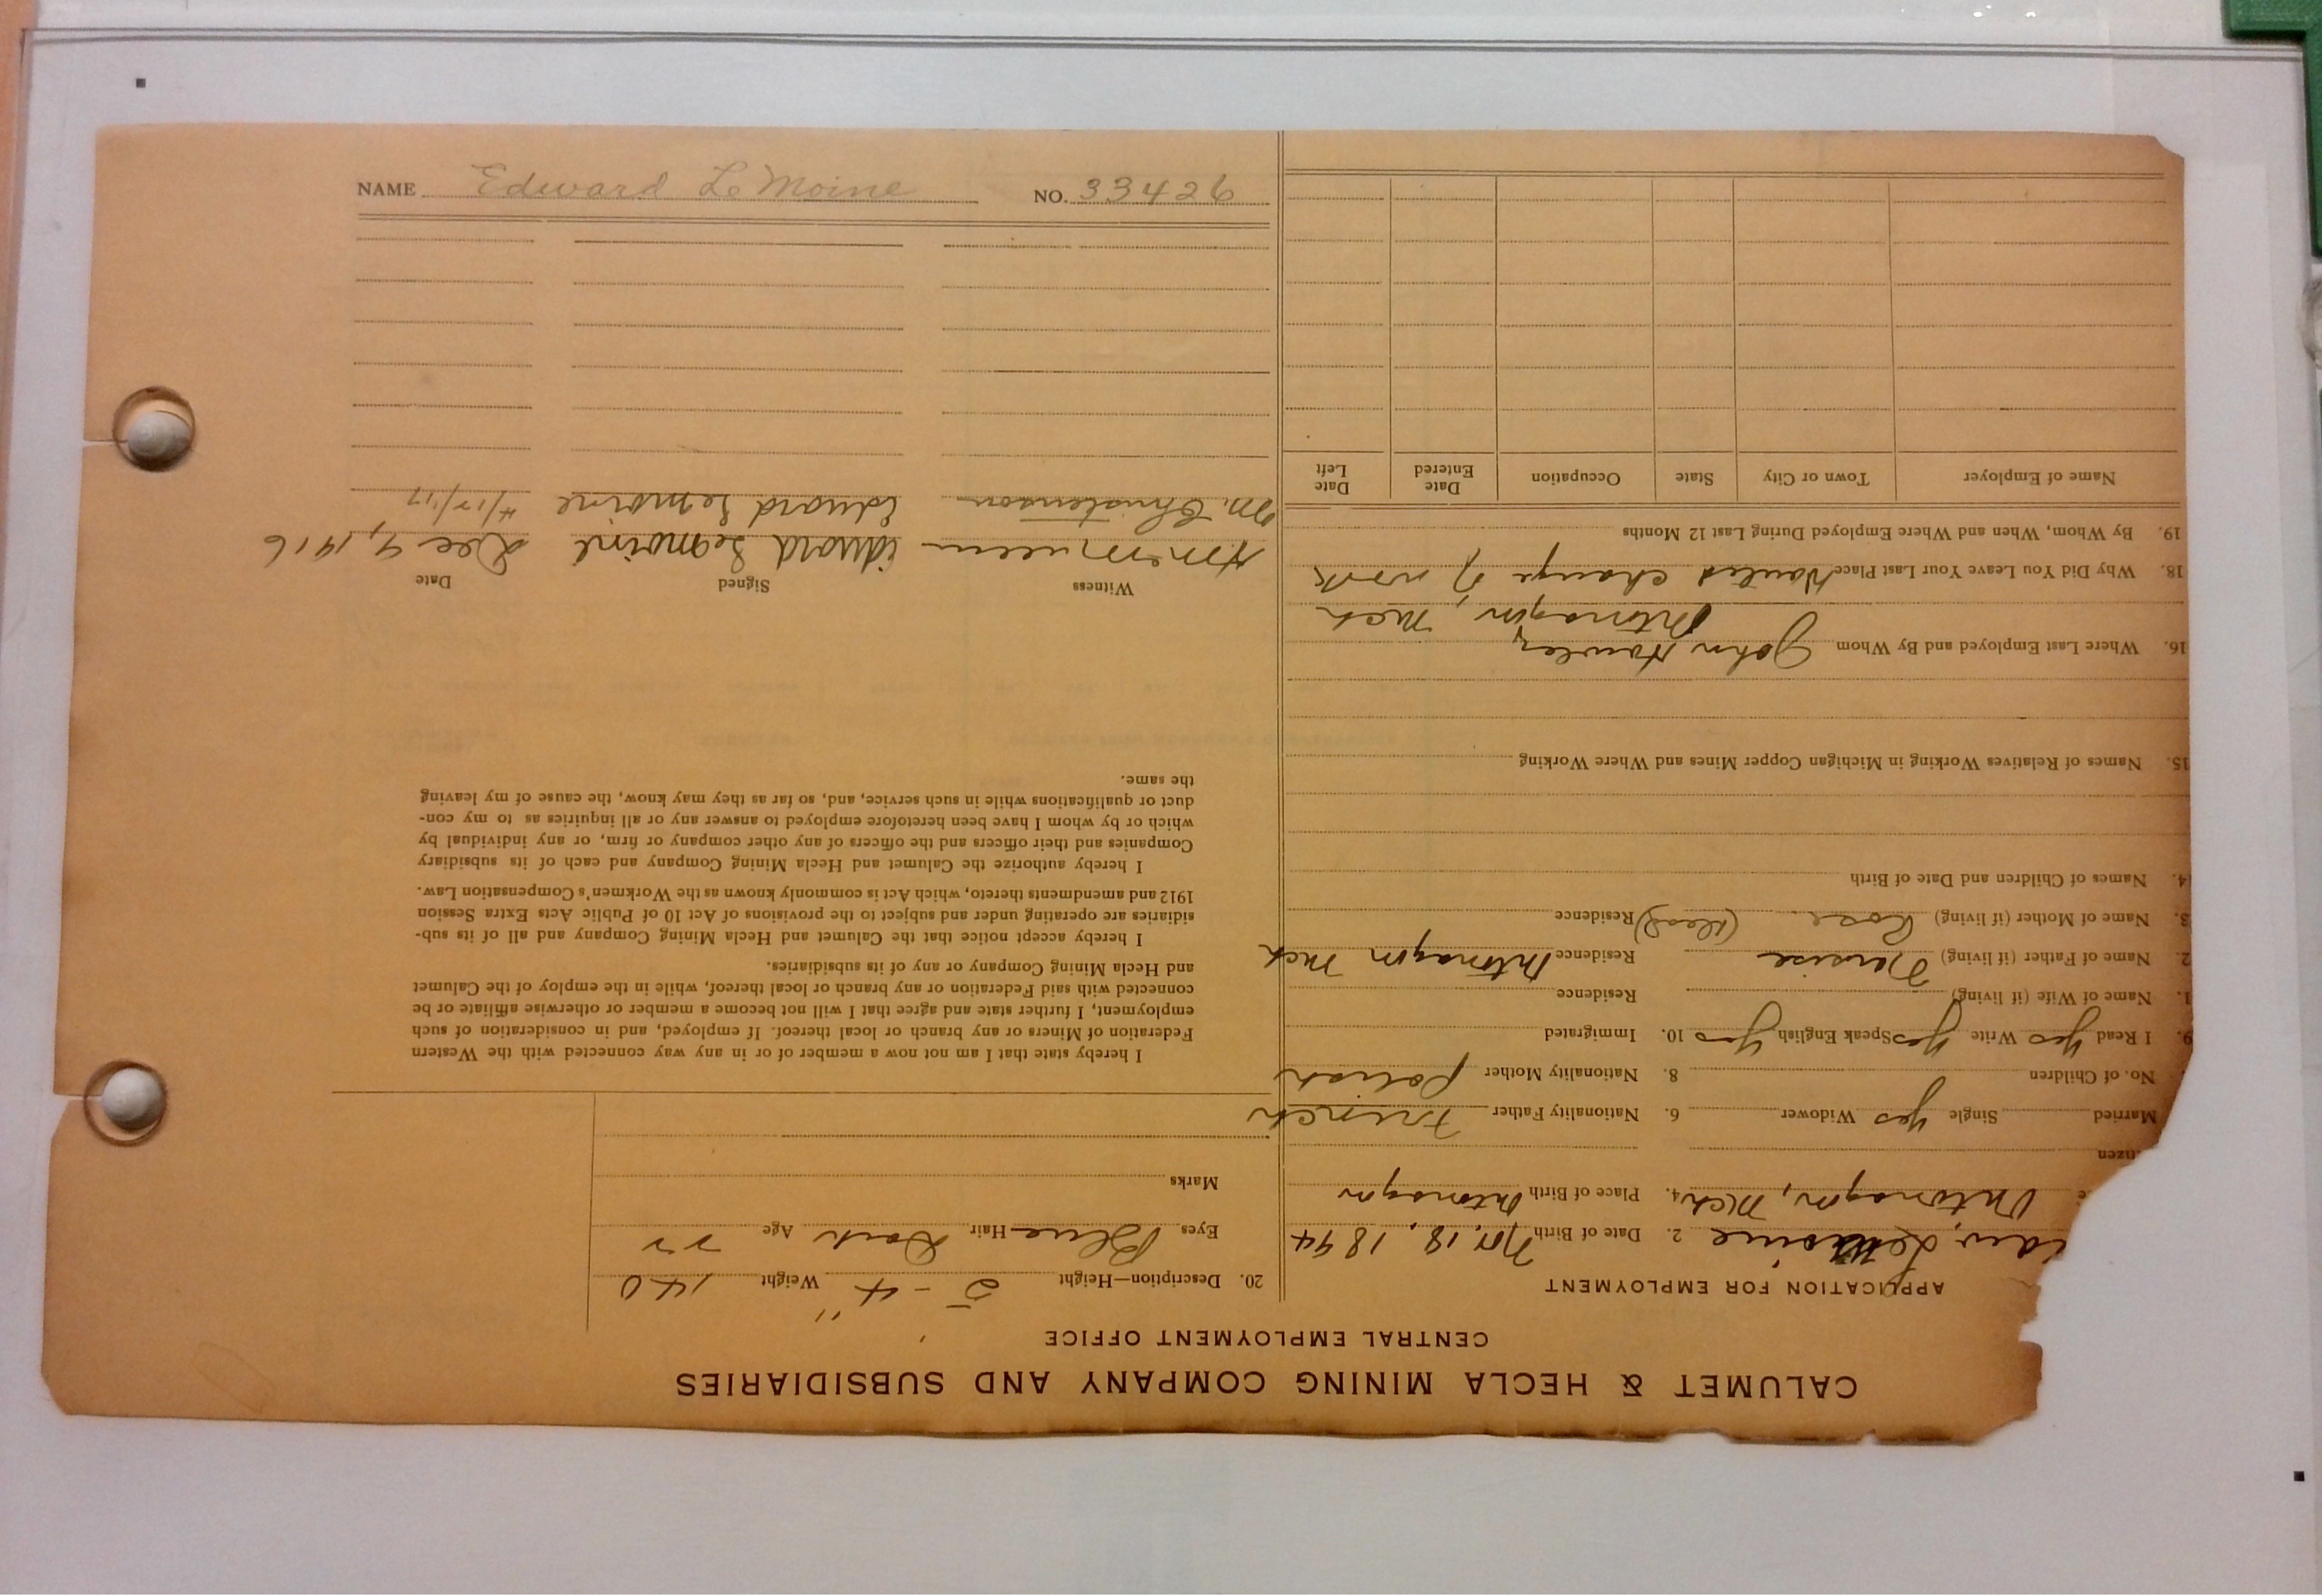 NAME Edward LeMoine NO. 33426
CALUMET & HECLA MINING COMPANY AND SUBSIDIARIES
CENTRAL EMPLOYMENT OFFICE
APPLICATION FOR EMPLOYMENT
LeMoine 2. Date of Birth Nov. 18, 1894
Ontonagon, Mich 4. Place of Birth Ontonagon
izen
Married Single Yes Widower 6. Nationality Father French
No. of Children 8. Nationality Mother Polish
9. I Read Yes Write Yes Speak English Yes 10. Immigrated
1. Name of Wife (if living) Residence
2. Name of Father (if living) Residence Ontonagon Mich
3. Name of Mother (if living) Rose (Dead) Residence
4. Names of Children and Date of Birth
15. Names of Relatives Working in Michigan Copper Mines and Where Working
16. Where Last Employed and By Whom John Hawley
Ontonagon, Mich
18. Why Did You Leave Your Last Place Wanted change of work
19. By Whom, When and Where Employed During Last 12 Months
Name of Employer Town or City State Occupation Date Entered Date Left
20. Description—Height 5'-4" Weight 140
Eyes Blue Hair Dark Age 22
Marks
I hereby state that I am not now a member of or in any way connected with the Western
Federation of Miners or any branch or local thereof. If employed, and in consideration of such
employment, I further state and agree that I will not become a member or otherwise affiliate or be
connected with said Federation or any branch or local thereof, while in the employ of the Calumet
and Hecla Mining Company or any of its subsidiaries.
I hereby accept notice that the Calumet and Hecla Mining Company and all of its sub-
sidiaries are operating under and subject to the provisions of Act 10 of Public Acts Extra Session
1912 and amendments thereto, which Act is commonly known as the Workmen's Compensation Law.
I hereby authorize the Calumet and Hecla Mining Company and each of its subsidiary
Companies and their officers and the officers of any other company or firm, or any individual by
which or by whom I have been heretofore employed to answer any or all inquiries as to my con-
duct or qualifications while in such service, and, so far as they may know, the cause of my leaving
the same.
Witness Signed Date
Eduard Lemoine Dec 4, 1916
M. Christenson Eduard Lemoine 4/17/17